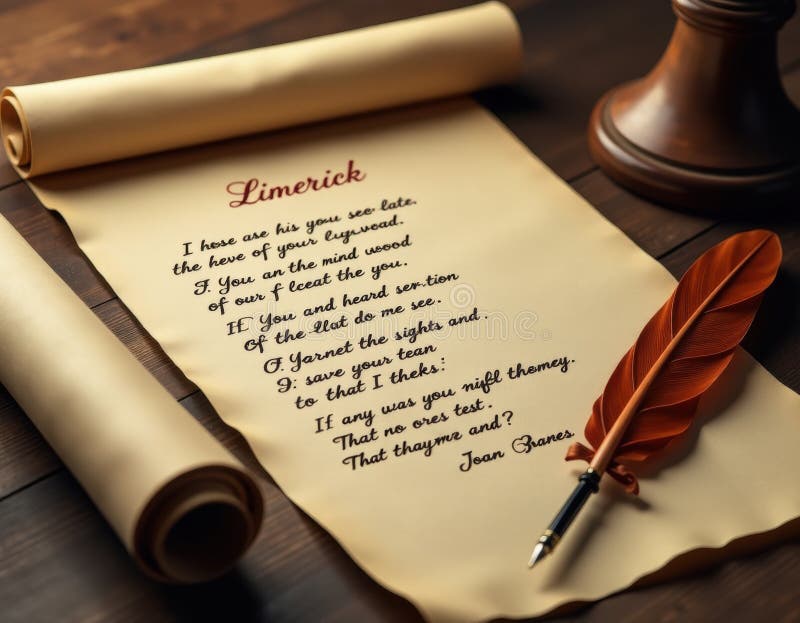 Limerick
I hose ase his you see late.
the heve of your lugwoad.
F. You an the mind wood
of our f lceat the you.
If You and heard ser.tion
Of the llot do me see.
O. Yarnet the sights and.
I: save your tean
to that I theks:
If any was you nifl thomey.
That no ores test.
That thaymz and?
Joan Granes
dreamstime